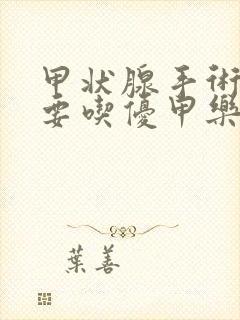 甲状腺手術
要喫優甲樂
葉善